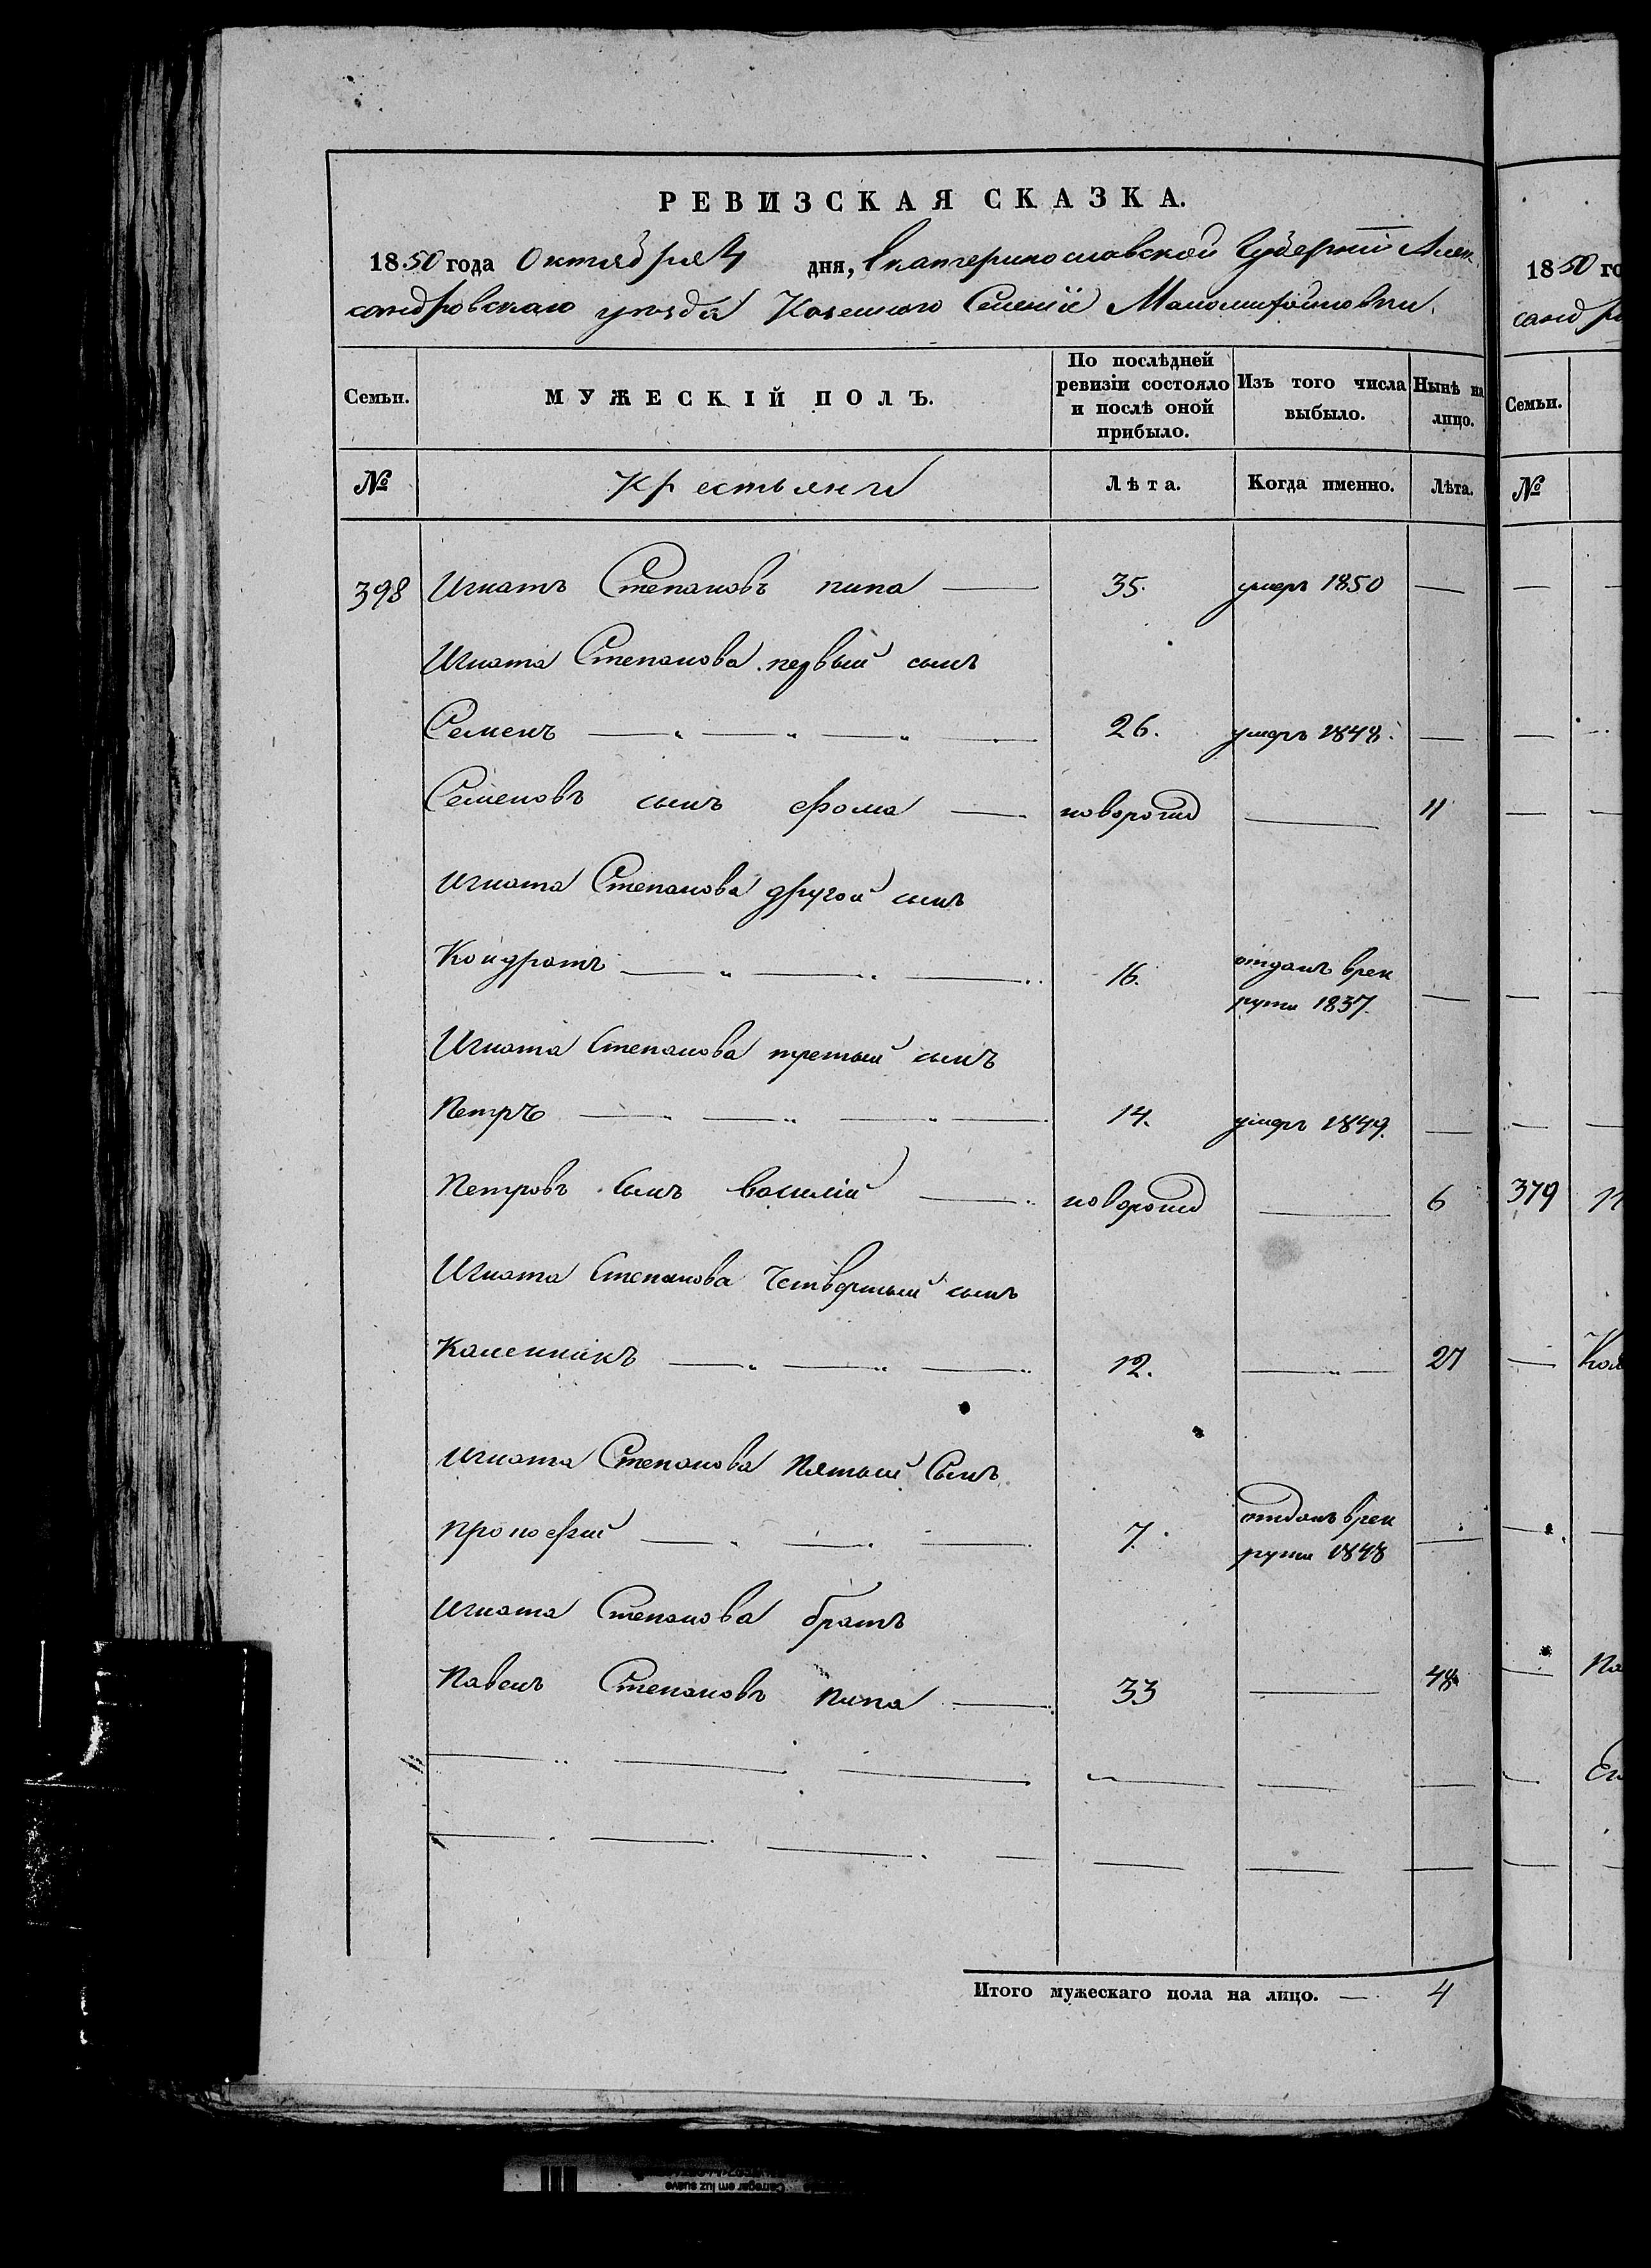 РЕВИЗСКАЯ СКАЗКА.
1850 года Октября 4 дня, Екатеринославской Губернии Алек
сандровскаго уезда Казеннаго Селения Маломихайловки.
Семьи. МУЖЕСКІЙ ПОЛЪ. По послѣдней ревизіи состояло и послѣ оной прибыло. Изъ того числа выбыло. Нынѣ на лицо.
№ Крестьяне Лѣта. Когда именно. Лѣта.
398 Игнатъ Степановъ пипа 35. умеръ 1850
Игната Степанова первый сынъ
Семенъ 26. умеръ 1848.
Семеновъ сынъ Фома новорожд 11
Игната Степанова другой сынъ
Кондратъ 16. отданъ врек
руты 1837.
Игната Степанова третый сынъ
Петръ 14. умеръ 1849.
Петровъ сынъ Василій новорожд 6
Игната Степанова Четвертый сынъ
Каленникъ 12. 27
Игната Степанова Пятый Сынъ
Прокофий 7. отданъ врек
руты 1848
Игната Степанова братъ
Павелъ Степановъ пипа 33 48
Итого мужескаго пола на лицо. — 4
1850 го
санд
Семьи.
№
379